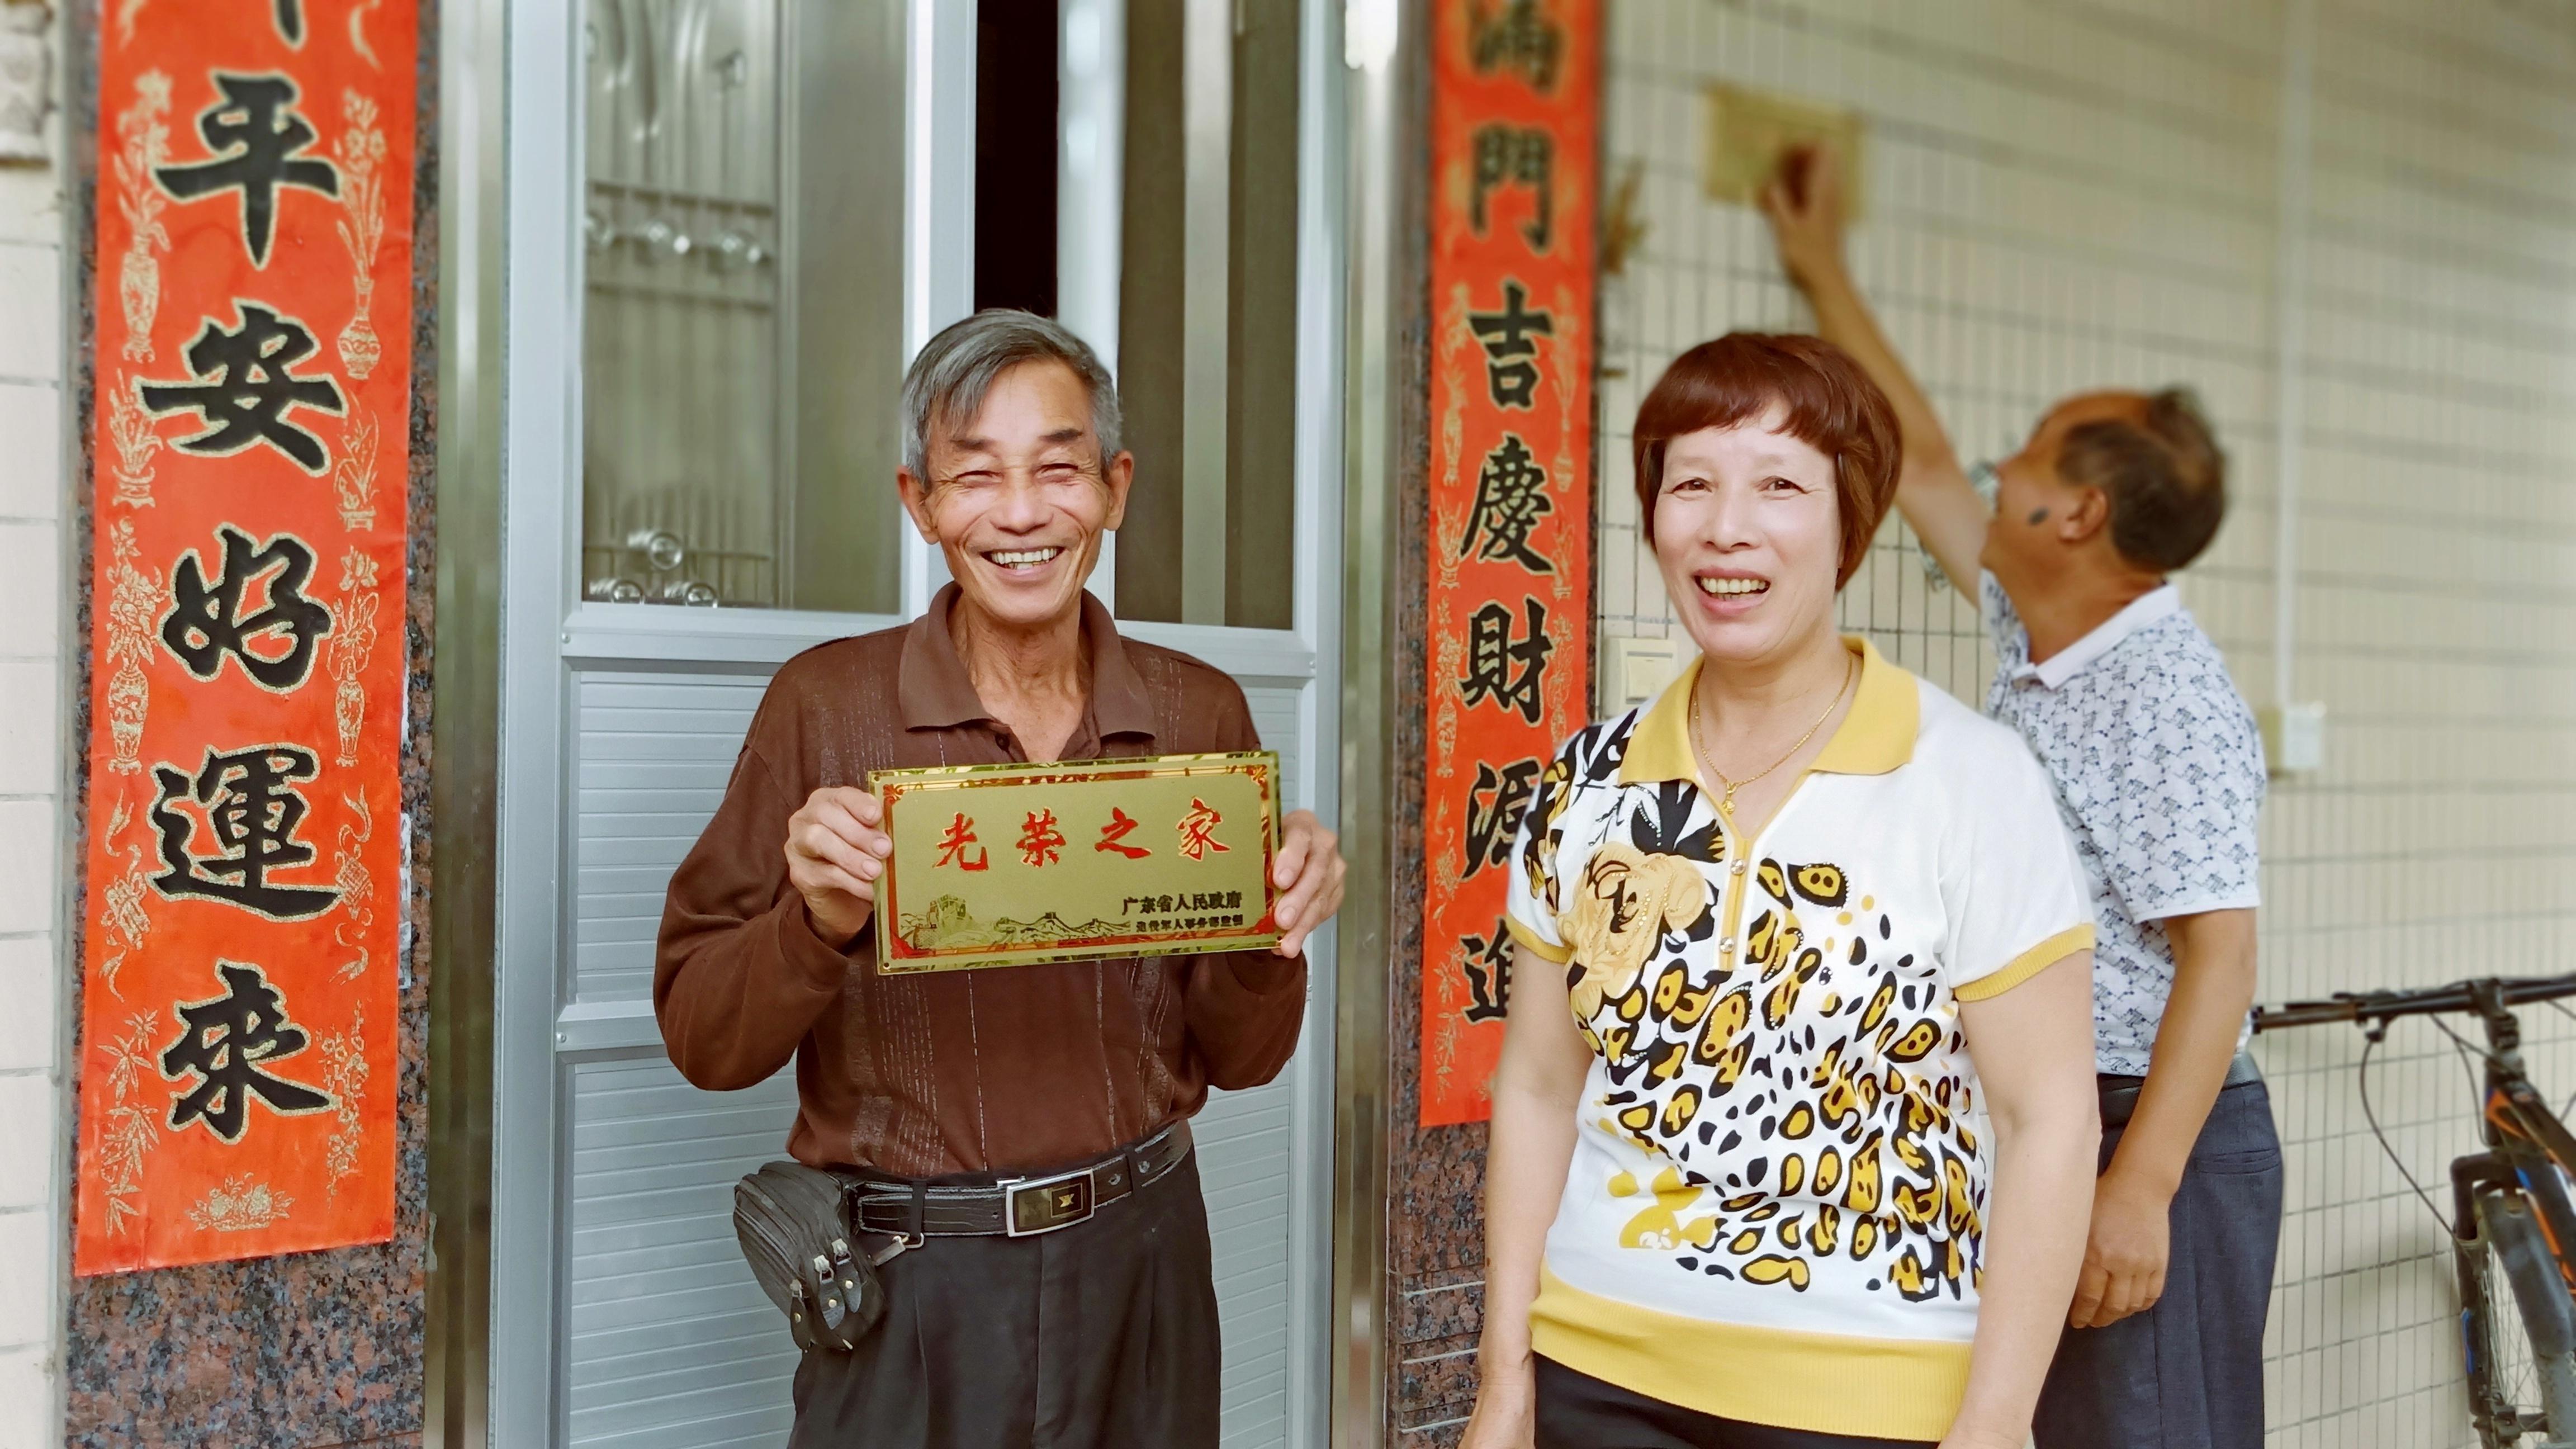 平安好運來
光荣之家
广东省人民政府
退役军人事务部监制
滿門吉慶財源進